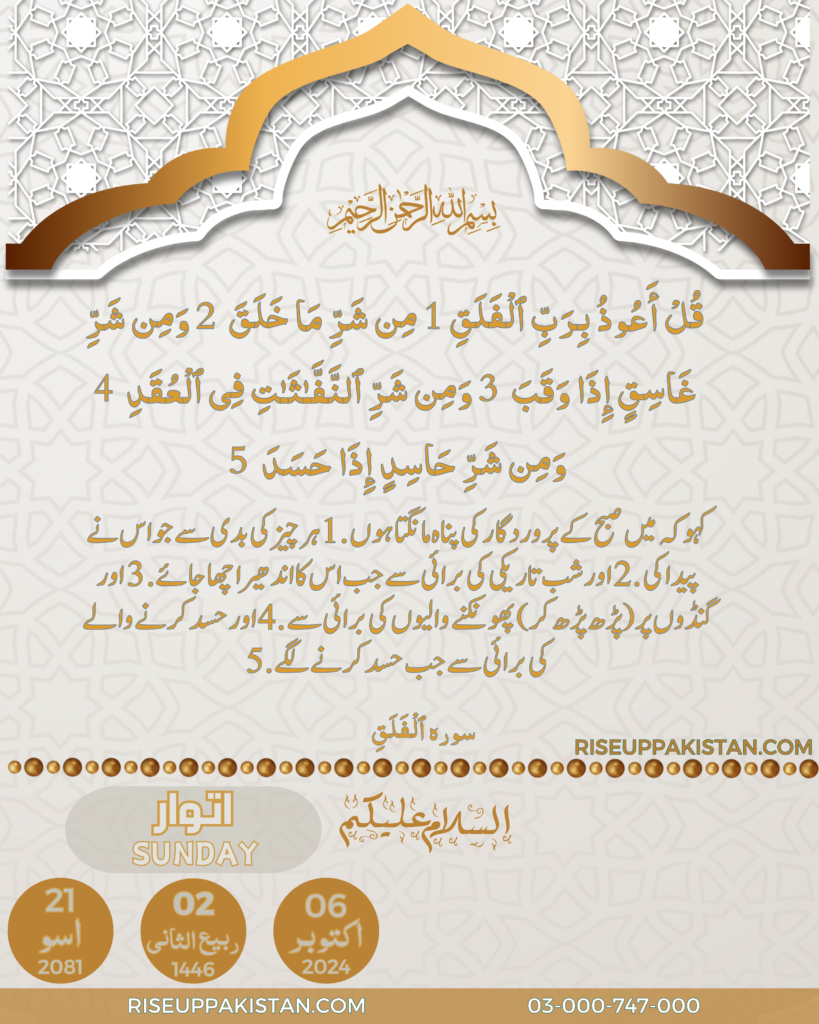 بسم الله الرحمن الرحيم
قُلْ أَعُوذُ بِرَبِّ ٱلْفَلَقِ 1 مِن شَرِّ مَا خَلَقَ 2 وَمِن شَرِّ
غَاسِقٍ إِذَا وَقَبَ 3 وَمِن شَرِّ ٱلنَّفَّـٰثَـٰتِ فِى ٱلْعُقَدِ 4
وَمِن شَرِّ حَاسِدٍ إِذَا حَسَدَ 5
کہو کہ میں صبح کے پروردگار کی پناہ مانگتا ہوں.1 ہر چیز کی بدی سے جو اس نے
پیدا کی .2 اور شب تاریکی کی برائی سے جب اس کا اندھیرا چھا جائے .3 اور
گنڈوں پر (پڑھ پڑھ کر) پھونکنے والیوں کی برائی سے .4 اور حسد کرنے والے
کی برائی سے جب حسد کرنے لگے .5
سوره ٱلْفَلَقِ
RISEUPPAKISTAN.COM
السلام علیکم
اتوار
SUNDAY
06
اکتوبر
2024
02
ربیع الثانی
1446
21
اسو
2081
RISEUPPAKISTAN.COM 03-000-747-000